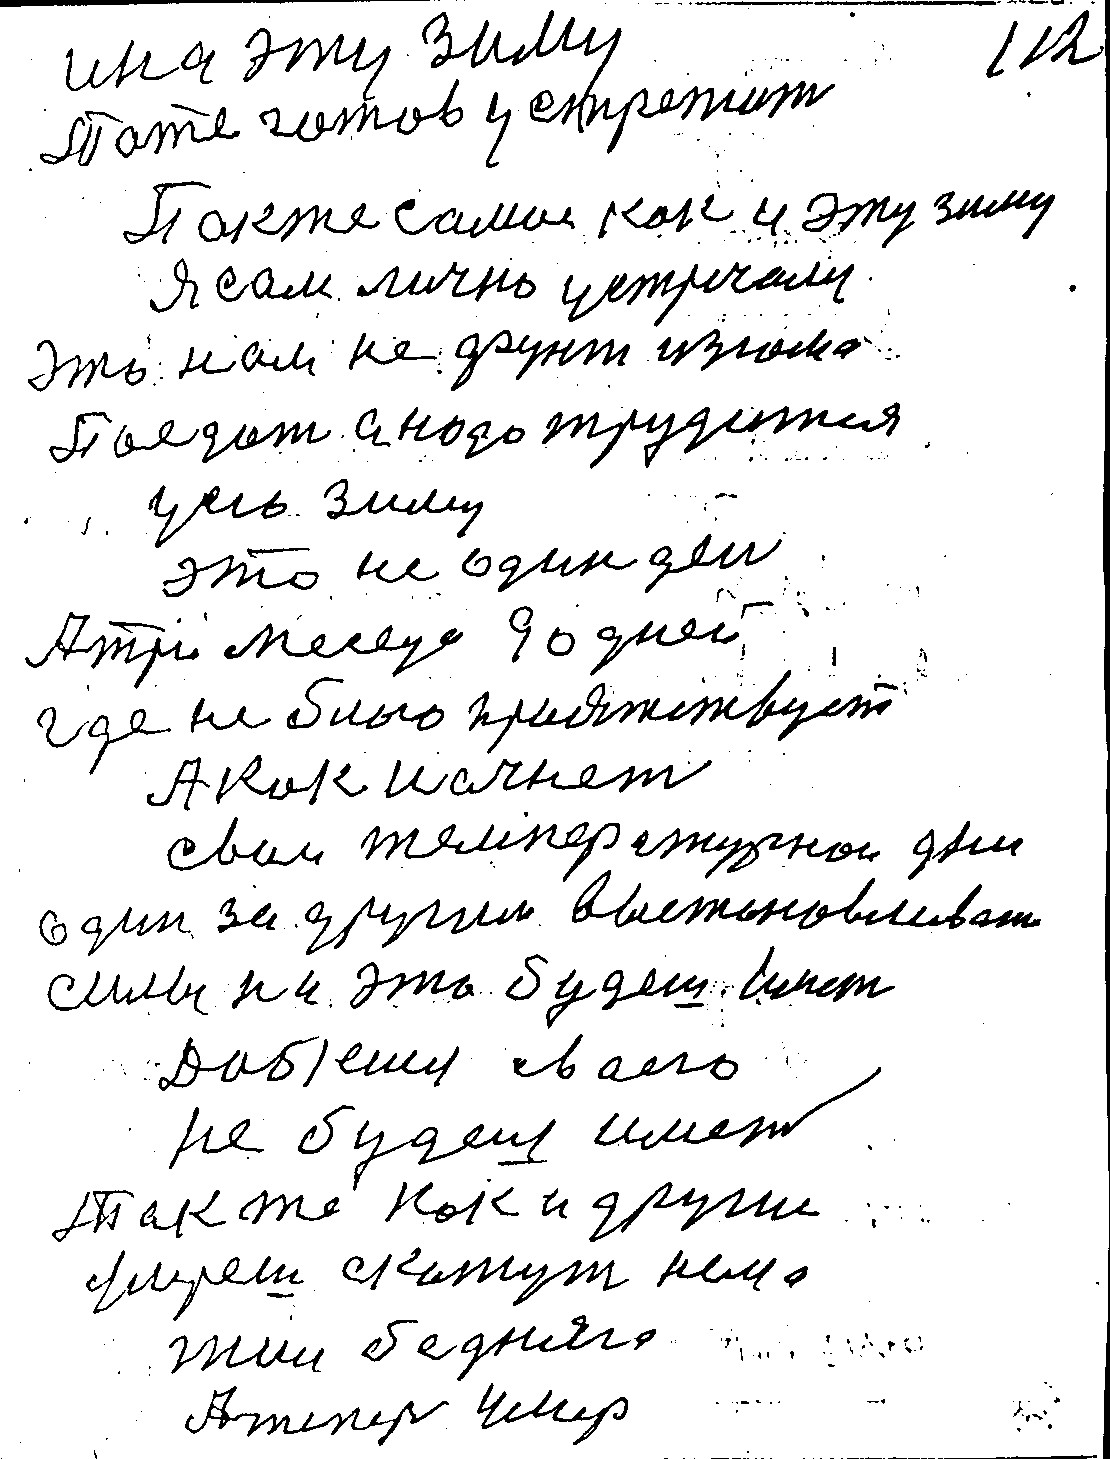 112
ина эту зиму
Тоже готов устретит
Также само как и эту зиму
Я сам лично устричали
Это нам не фунт изюма
Поедат а надо трудится
усю зиму
это не один ден
Атри месеца 90 дней
где не было припятствует
А как начнет
свои температурнои дни
один за другим выстановливат
силы на это будеш имет
Добрешу своего
не будеш имет
Так же как и други
умреш скажут нема
жил бедняга
Атепер умер